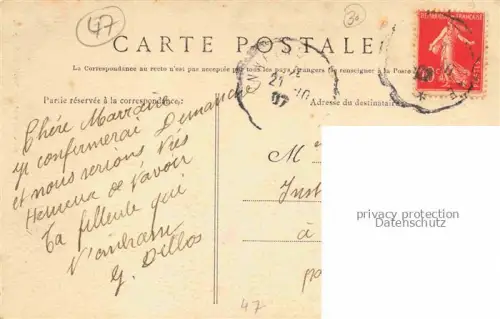 47
30
CARTE POSTALE
La Correspondance au recto n'est pas acceptée par tous les pays étrangers (Se renseigner à la Poste
Partie réservée à la correspondance
Adresse du destinataire
21
07
Chère Marraine
confirmerai Dimanche
et nous serions très
Heureux de t'avoir
Ta filleule qui
t'embrasse
M
Inst
à
privacy protection
Datenschutz
47